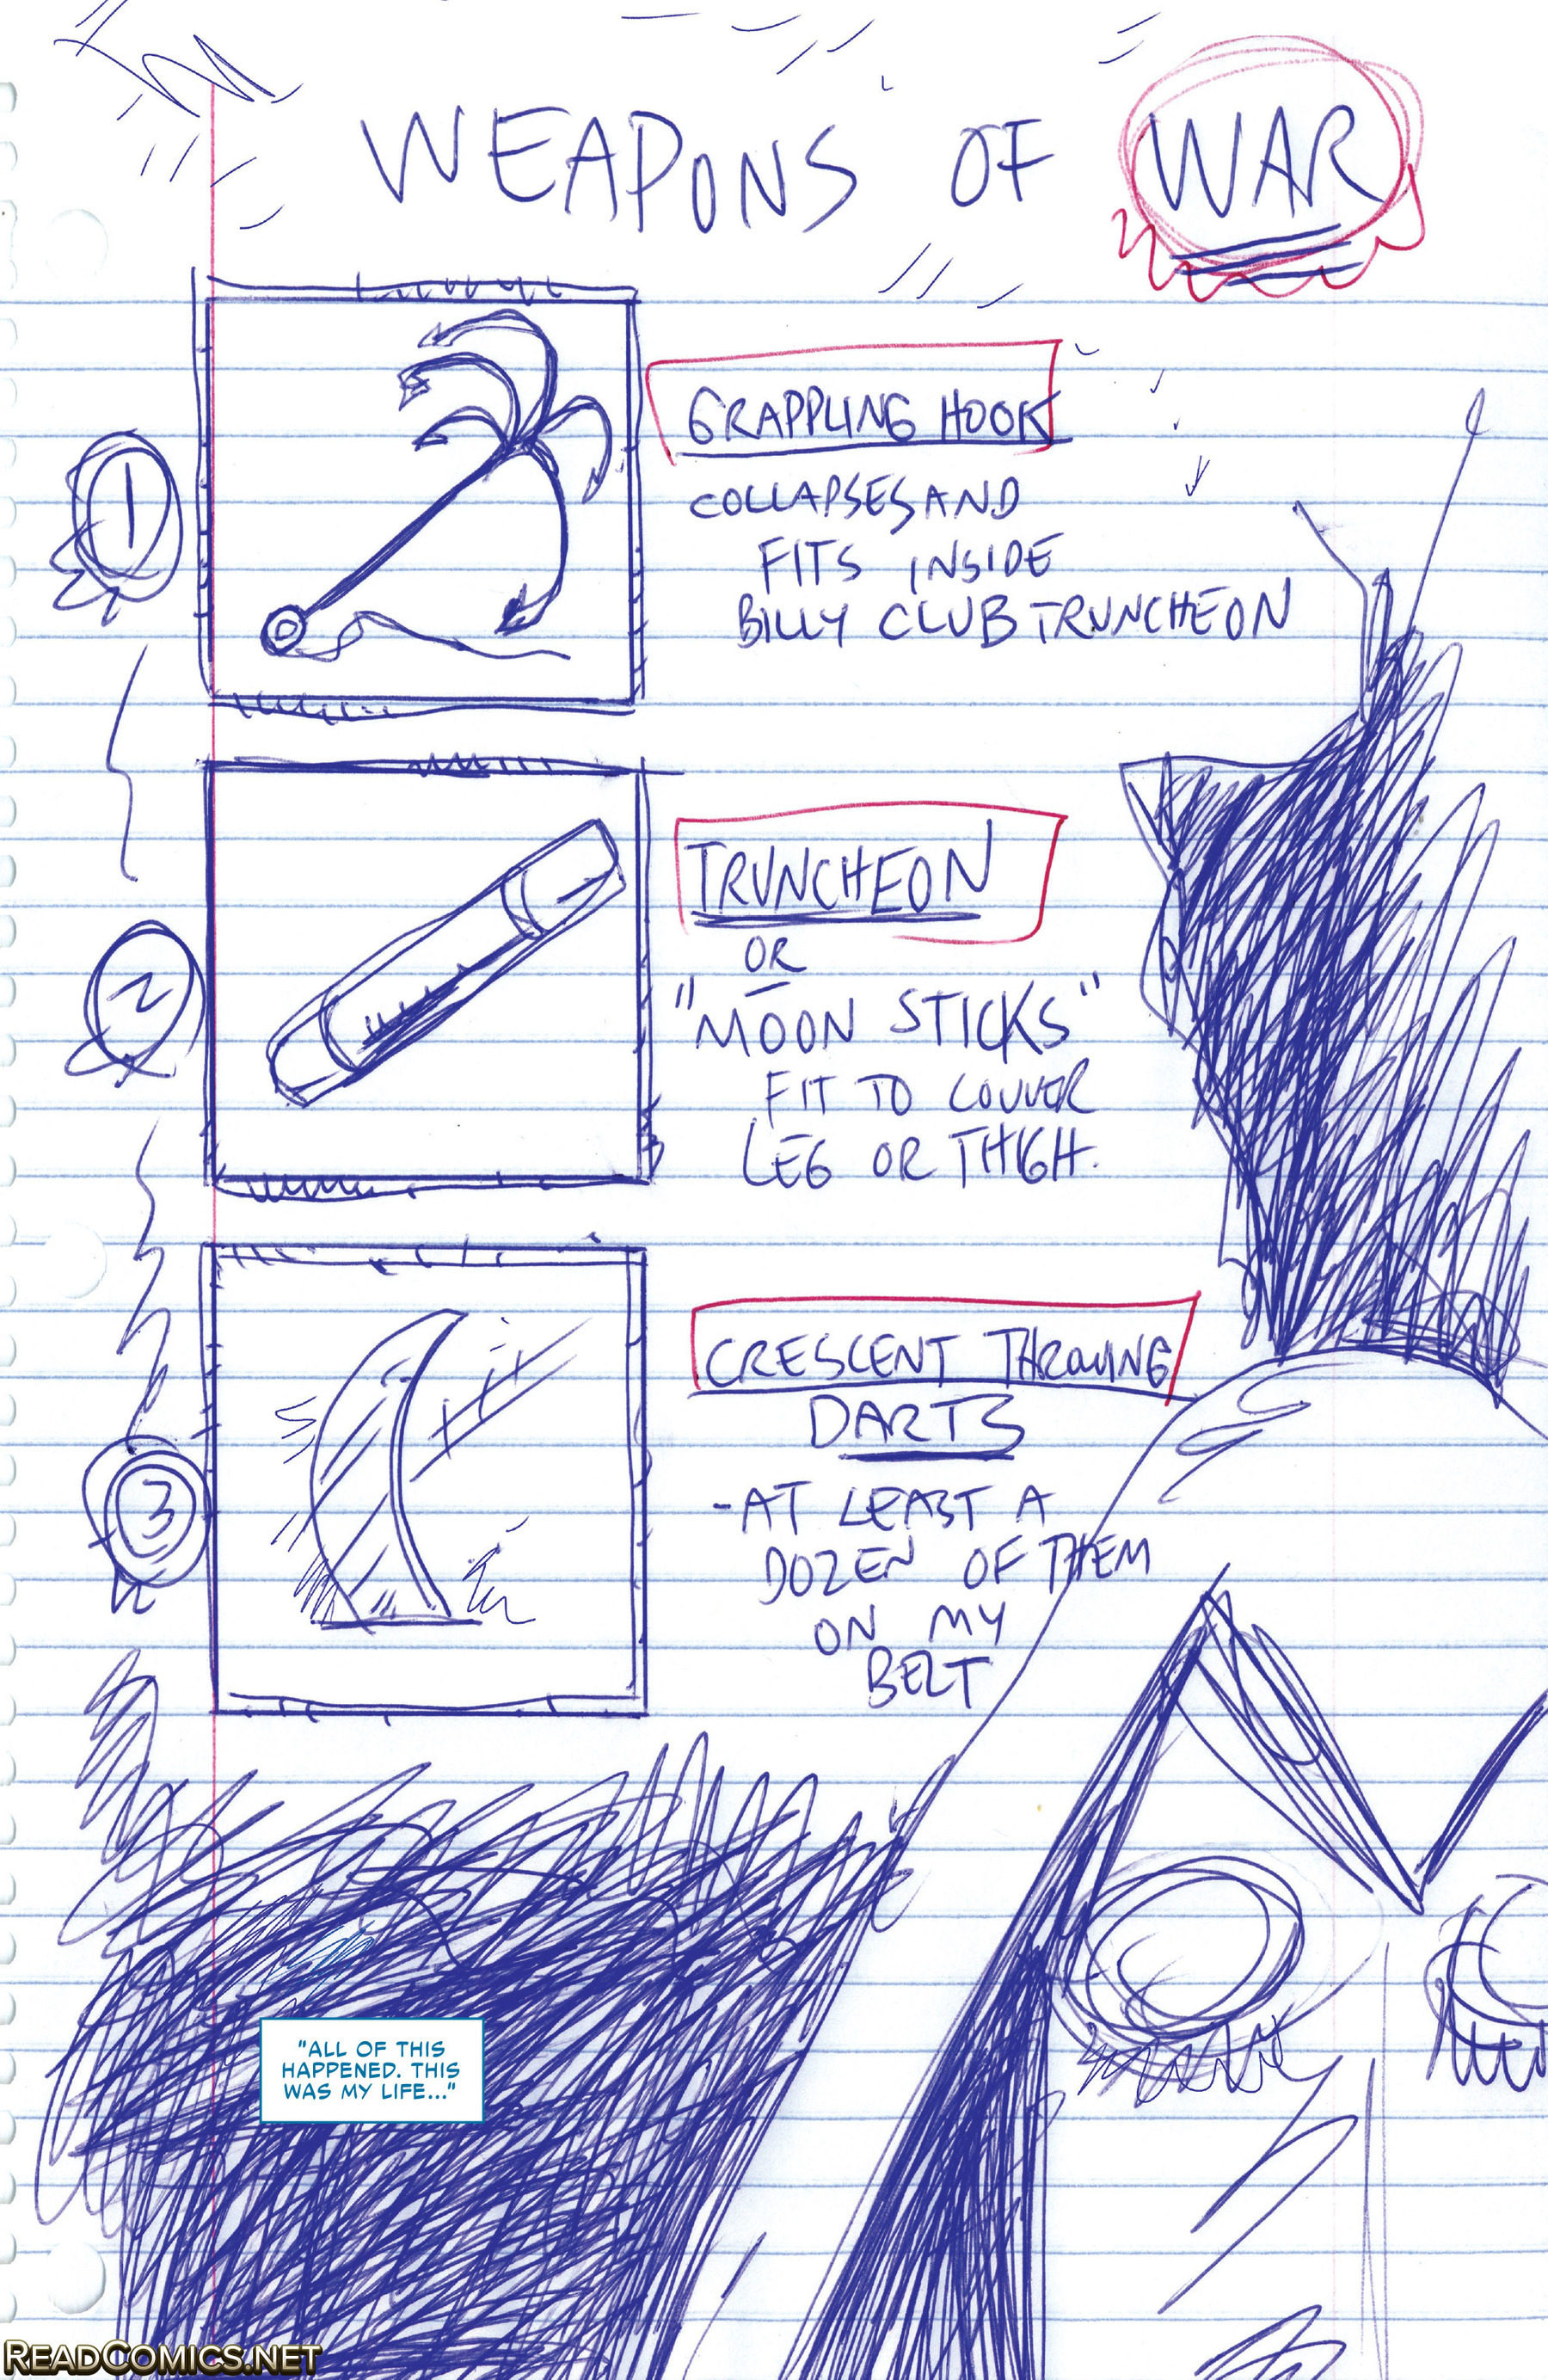 WEAPONS OF WAR
1
GRAPPLING HOOK
COLLAPSES AND
FITS INSIDE
BILLY CLUB TRUNCHEON
2
TRUNCHEON
OR
"MOON STICKS"
FIT TO COUVER
LEG OR THIGH.
3
CRESCENT THROWING
DARTS
-AT LEAST A
DOZEN OF THEM
ON MY
BELT
"ALL OF THIS
HAPPENED. THIS
WAS MY LIFE..."
READCOMICS.NET